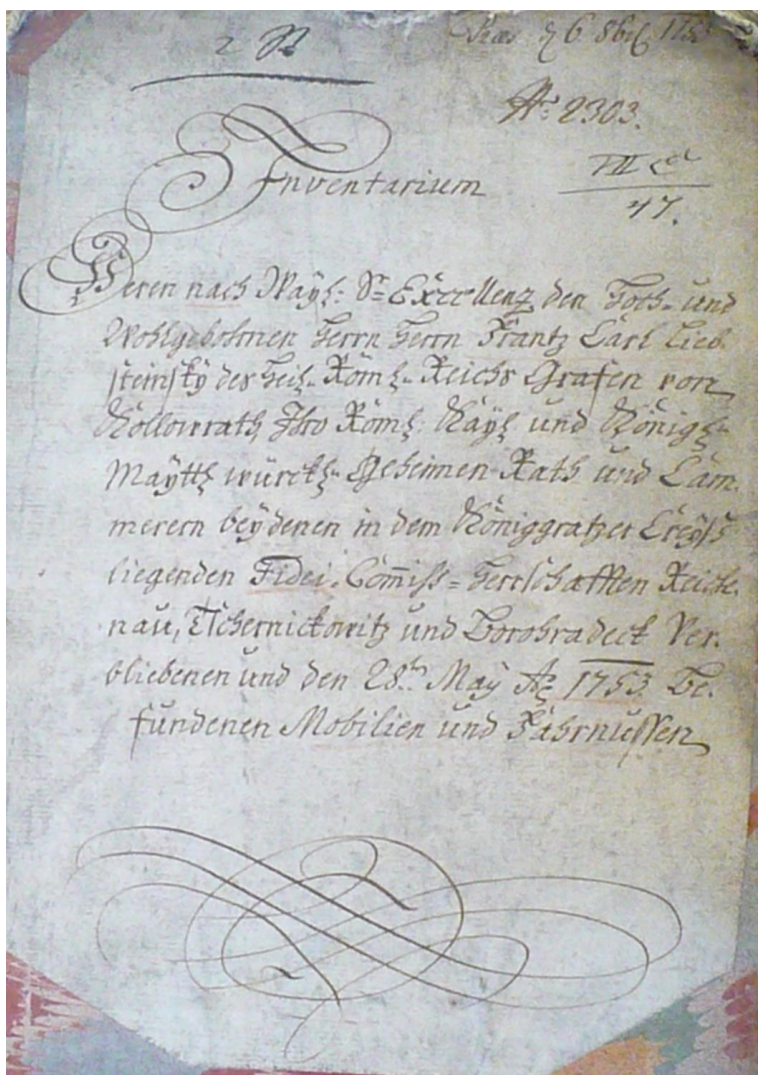 No 2303.
VII
47.
Inventarium
Deren nach Wayl: Sr Excellenz den Hoch- und
Wohlgebohrnen Herrn Herrn Frantz Carl Lieb
steinsky des Heil. Röml. Reichs Grafen von
Kollowrath, Ihro Röml: Kayl und Königl
Maytt würckl. Geheimen Rath und Cam-
merern beydenen in dem Königgratzer Creyß
liegenden Fidei Com̄iss = Herrschafften Reiche.
nau, Tschernickowitz und Borohradeck Ver.
bliebenen und den 28ten May Ao 1753 be.
fundenen Mobilien und Fahrnussen